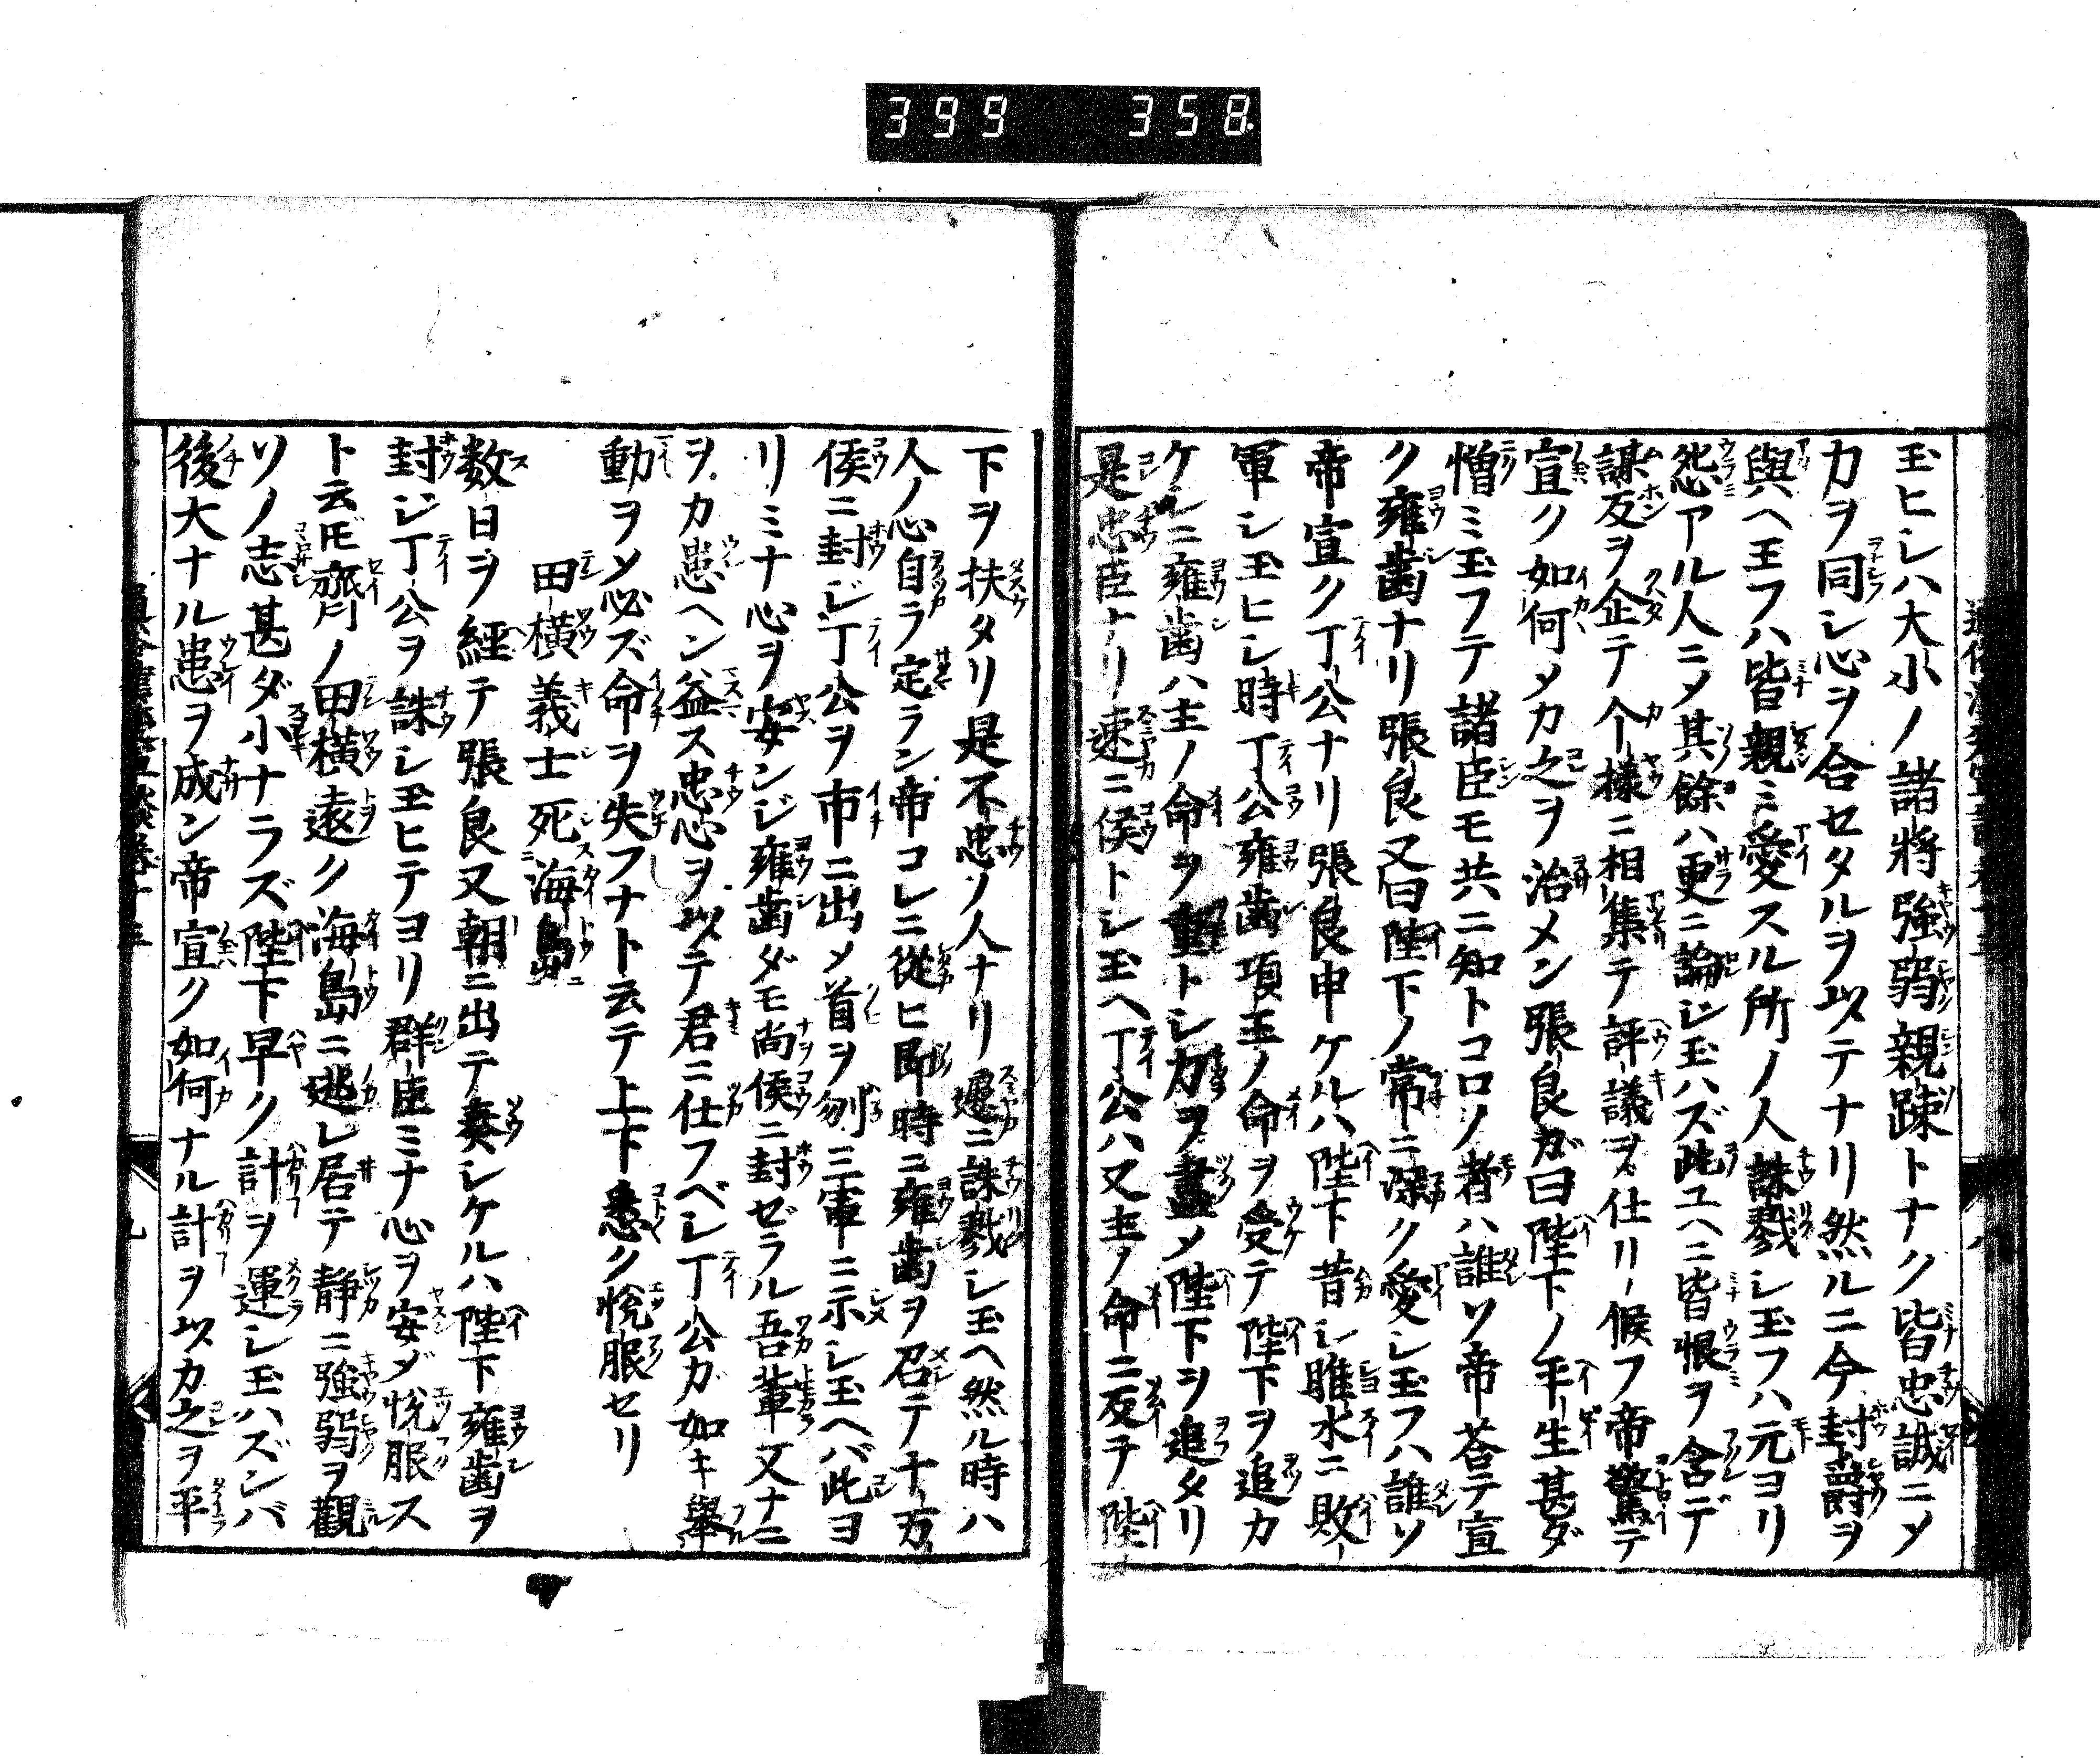 399 358.
玉ヒシハ大小ノ諸將強弱親踈トナク皆忠誠ニメ
力ヲ同シ心ヲ合セタルヲ以テナリ然ルニ今封爵ヲ
與ヘ玉フハ皆親ミ愛スル所ノ人誅戮シ玉フハ元ヨリ
怨アル人ニメ其餘ハ更ニ論ジ玉ハズ此ユヘニ皆恨ヲ含デ
謀反ヲ企テ个樣ニ相集テ評議ヲ仕リ候フ帝驚テ
宣ク如何メカ之ヲ治メン張良ガ曰陛下ノ平生甚ダ
憎ミ玉フテ諸臣モ共ニ知トコロノ者ハ誰ソ帝荅テ宣
ク雍齒ナリ張良又曰陛下ノ常ニ深ク愛シ玉フハ誰ソ
帝宣ク丁公ナリ張良申ケルハ陛下昔シ睢水ニ敗
軍シ玉ヒシ時丁公雍齒項王ノ命ヲ受テ陛下ヲ追カ
ケシニ雍齒ハ主ノ命ヲ重トシ力ヲ盡メ陛下ヲ追タリ
是忠臣ナリ速ニ侯トシ玉ヘ丁公ハ又主ノ命ニ反テ陛
下ヲ扶タリ是不忠ノ人ナリ速ニ誅戮シ玉ヘ然ル時ハ
人ノ心自ラ定ラン帝コレニ從ヒ即時ニ雍齒ヲ召テ十万
侯ニ封ジ丁公ヲ市ニ出メ首ヲ刎三軍ニ示シ玉ヘバ此ヨ
リミナ心ヲ安ンジ雍齒ダモ尚侯ニ封ゼラル吾輩又ナニ
ヲカ患ヘン益ス忠心ヲ以テ君ニ仕フベシ丁公ガ如キ舉
動ヲメ必ズ命ヲ失フナト云テ上下悉ク悅服セリ
田橫義士死海島
数日ヲ經テ張良又朝ニ出テ奏シケルハ陛下雍齒ヲ
封ジ丁公ヲ誅シ玉ヒテヨリ群臣ミナ心ヲ安ゾ悅服ス
ト云𪜈齊ノ田橫遠ク海島ニ逃レ居テ静ニ強弱ヲ觀
ソノ志甚ダ小ナラズ陛下早ク計ヲ運シ玉ハズンバ
後大ナル患ヲ成ン帝宣ク如何ナル計ヲ以カ之ヲ平